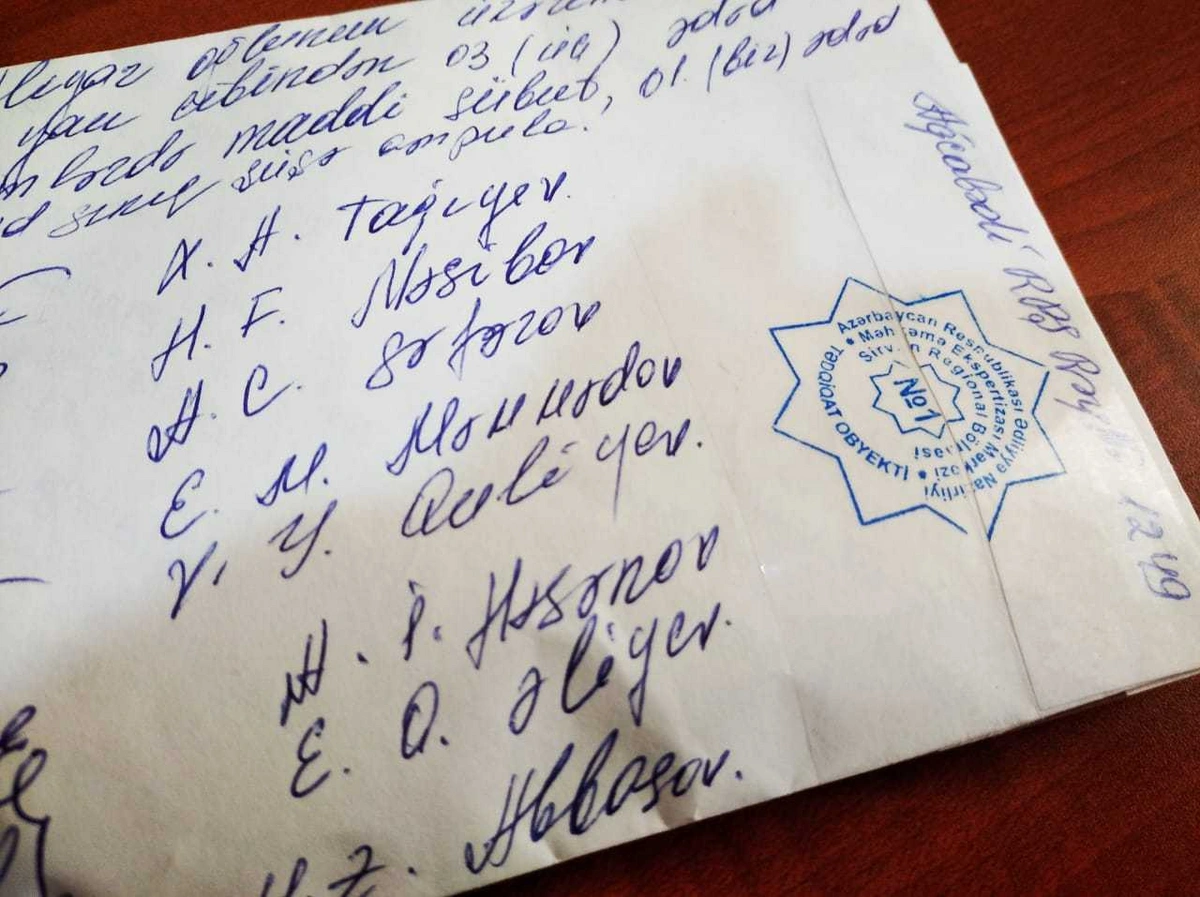 oğlunun
yan cibindən 03 (üç) ədəd
maddi sübut, 01. (bir) ədəd
sınıq şüşə ampula.
X. A. Tağıyev.
H. F. Nəsibov
A. C. Səfərov
E. M. Məmmədov
V. Y. Quliyev.
A. İ. Həsənov
E. Q. Əliyev.
Z. Abbasov.
Ağcabədi RPŞ
1249
Azərbaycan Respublikası Ədliyyə Nazirliyi
Məhkəmə Ekspertizası Mərkəzi
Şirvan Regional Bölməsi
TƏDQİQAT OBYEKTİ
№1